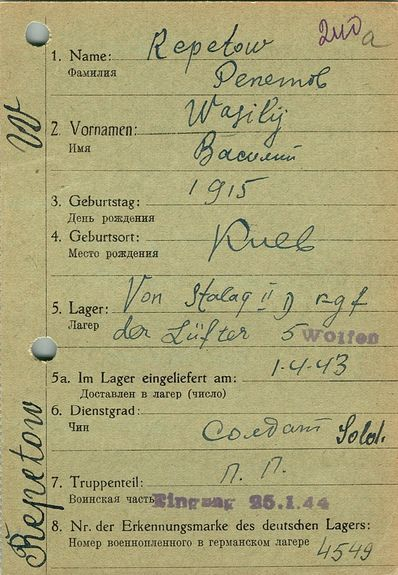 1. Name: Repetow
Фамилия Репетов
2. Vornamen: Wasilij
Имя Василий
3. Geburtstag: 1915
День рождения
4. Geburtsort: Киев
Место рождения
5. Lager: Von Stalag II D
Лагер der Lüfter 5 Wolfen
5a. Im Lager eingeliefert am: 1-4-43
Доставлен в лагер (число)
6. Dienstgrad:
Чин Солдат Sold.
7. Truppenteil: П. П.
Воинская часть Eingang 25.1.44
8. Nr. der Erkennungsmarke des deutschen Lagers:
Номер военнопленного в германском лагере 4549
W
Repetow